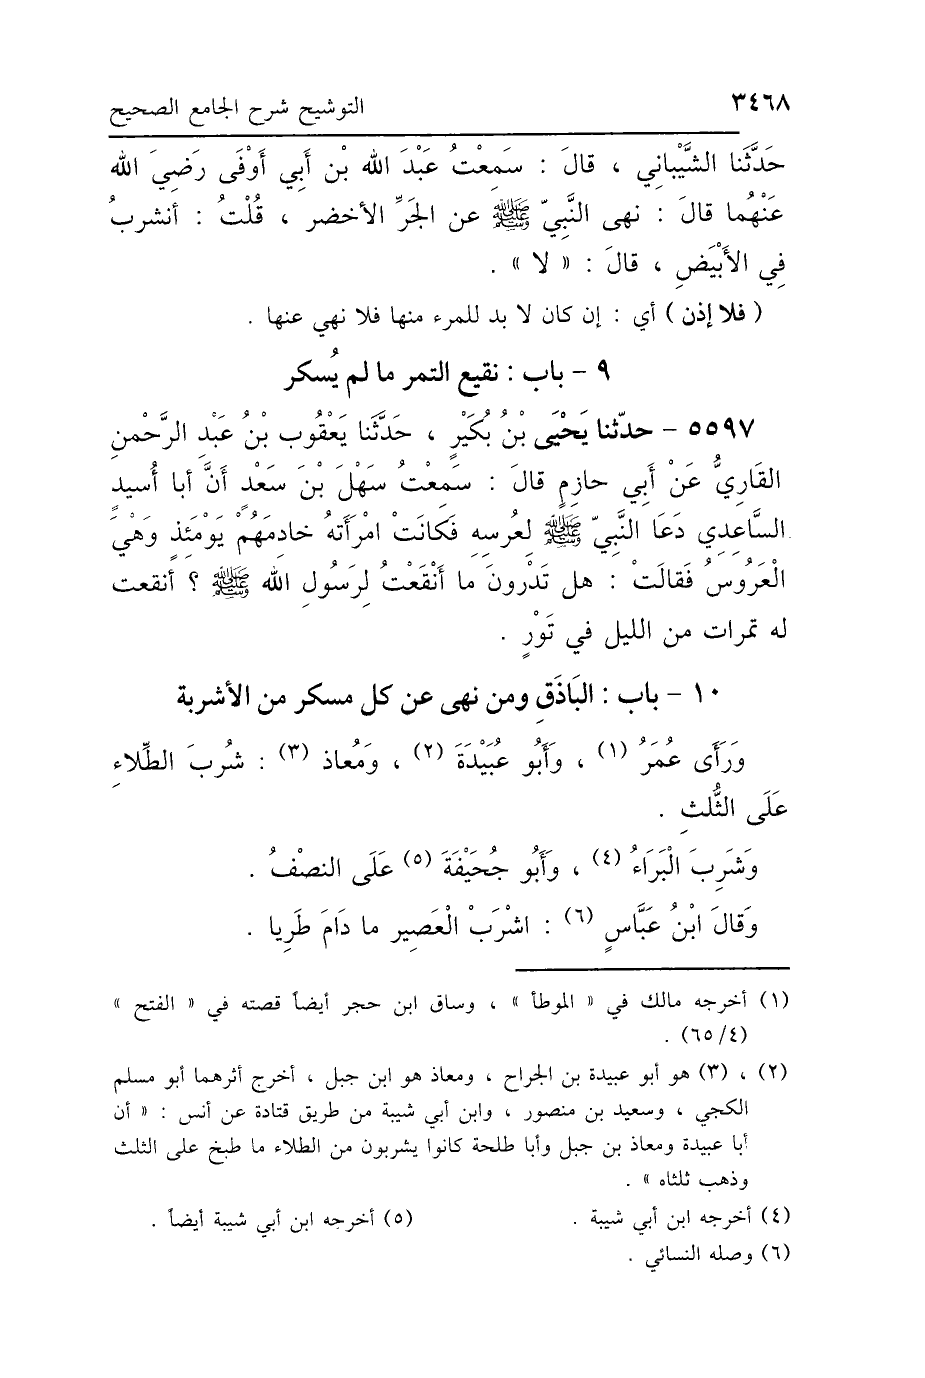 ٣٤٦٨ التوشيح شرح الجامع الصحيح
حَدَّثَنا الشَّيْباني ، قالَ : سَمِعْتُ عَبْدَ الله بْن أَبِي أَوْفَى رَضِيَ الله
عَنْهُما قالَ : نهى النَّبِيّ ﷺ عن الجَرِّ الأخضر ، قُلْتُ : أنشربُ
فِي الأَبْيَضِ ، قالَ : « لا » .
( فلا إذن ) أي : إن كان لا بد للمرء منها فلا نهي عنها .
٩ - باب : نقيع التمر ما لم يُسكر
٥٥٩٧ - حدّثنا يَحْيَى بْنُ بُكَيْرٍ ، حَدَّثَنا يَعْقُوب بْنُ عَبْدِ الرَّحْمنِ
القَارِيُّ عَنْ أَبي حازِمٍ قالَ : سَمِعْتُ سَهْلَ بْنَ سَعْدٍ أَنَّ أبا أُسيدٍ
السَّاعِدِي دَعَا النَّبِيّ ﷺ لِعُرسِهِ فَكانَتْ امْرَأَتهُ خادِمَهُمْ يَوْمَئذٍ وَهْيَ
الْعَرُوسُ فَقالَتْ : هل تَدْرونَ ما أَنْقَعْتُ لِرَسُولِ الله ﷺ ؟ أنقعت
له تمرات من الليل في تَوْرٍ .
١٠ - باب : البَاذَقِ ومن نهى عن كل مسكر من الأشربة
وَرَأَى عُمَرُ (١) ، وَأَبُو عُبَيْدَةَ (٢) ، وَمُعاذ (٣) : شُربَ الطِّلاءِ
عَلَى الثُّلثِ .
وَشَرِبَ الْبَرَاءُ (٤) ، وَأَبُو جُحَيْفَةَ (٥) عَلَى النصْفُ .
وَقالَ ابْنُ عَبَّاسٍ (٦) : اشْرَبْ الْعَصِير ما دَامَ طَرِيا .
(١) أخرجه مالك في « الموطأ » ، وساق ابن حجر أيضاً قصته في « الفتح »
(٤/ ٦٥) .
(٢) ، (٣) هو أبو عبيدة بن الجراح ، ومعاذ هو ابن جبل ، أخرج أثرهما أبو مسلم
الكجي ، وسعيد بن منصور ، وابن أبي شيبة من طريق قتادة عن أنس : « أن
أبا عبيدة ومعاذ بن جبل وأبا طلحة كانوا يشربون من الطلاء ما طبخ على الثلث
وذهب ثلثاه » .
(٤) أخرجه ابن أبي شيبة . (٥) أخرجه ابن أبي شيبة أيضاً .
(٦) وصله النسائي .